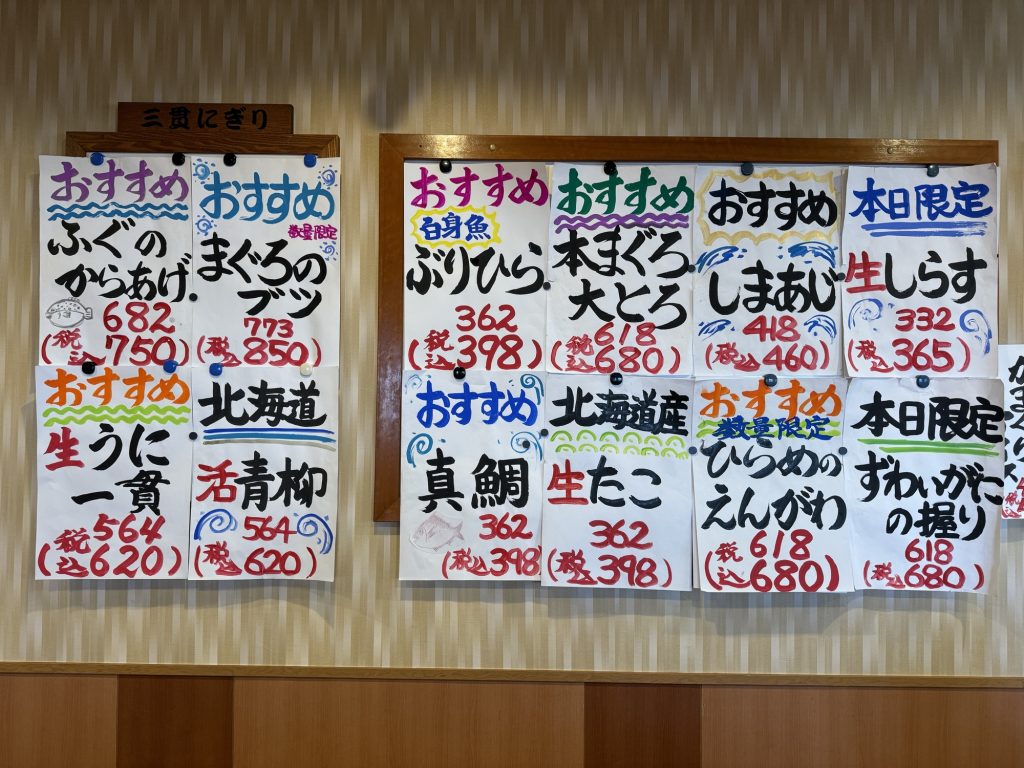 三貫にぎり
おすすめ
ふぐの
からあげ
682
(税込750)
おすすめ
数量限定
まぐろの
ブツ
773
(税込850)
おすすめ
生うに
一貫
564
(税込620)
北海道
活青柳
564
(税込620)
おすすめ
白身魚
ぶりひら
362
(税込398)
おすすめ
本まぐろ
大とろ
618
(税込680)
おすすめ
しまあじ
418
(税込460)
本日限定
生しらす
332
(税込365)
おすすめ
真鯛
362
(税込398)
北海道産
生たこ
362
(税込398)
おすすめ
数量限定
ひらめの
えんがわ
618
(税込680)
本日限定
ずわいがに
の握り
618
(税込680)